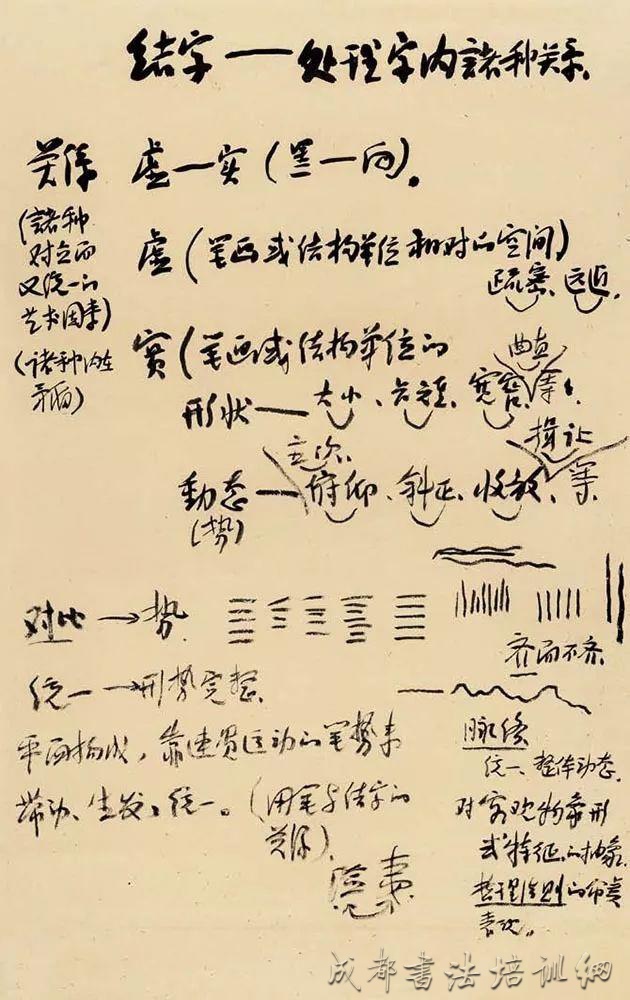 结字一处理字内諸种关系
关係 虚一实(黑一白)。
(諸种
对立而
又统一的
艺术因素)
(诸种内在
矛盾)
虚(笔画或结构单位相对的空间)
疏密、远近
實(笔画或结构单位的
曲直
形状—大小、长短、宽窄、等)
揖让
主次、
動态—俯仰、斜正、收放、等.
(势)
对比→势
齐而不齐
统一→形势完整.
平面构成,靠连贯运动的笔势来
带动、生发、统一。(用笔与结字的
关係)
脉络
统一、整体动态.
对客观物象形
式特征的抽象.
哲理法则的
成都書法培训網